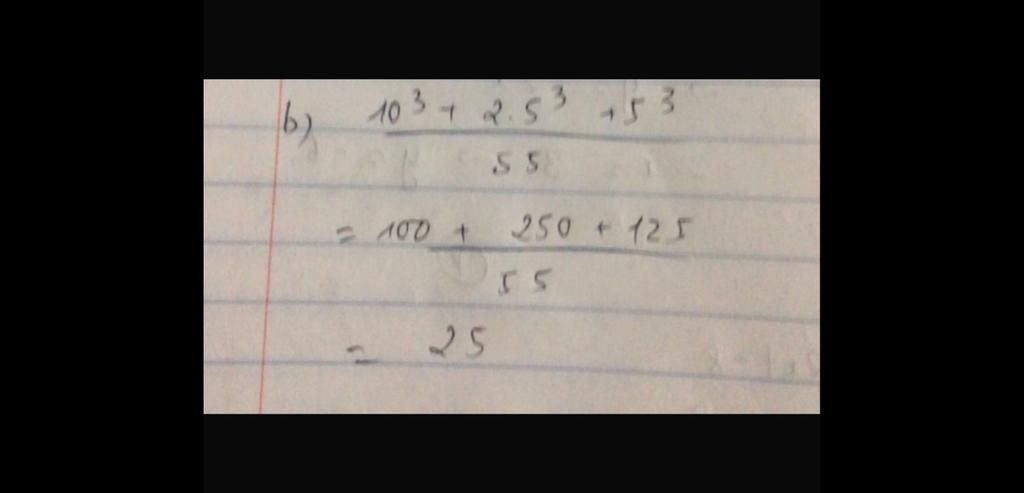 b) 10³ + 2.5³ + 5³
55
= 100 + 250 + 125
55
= 25